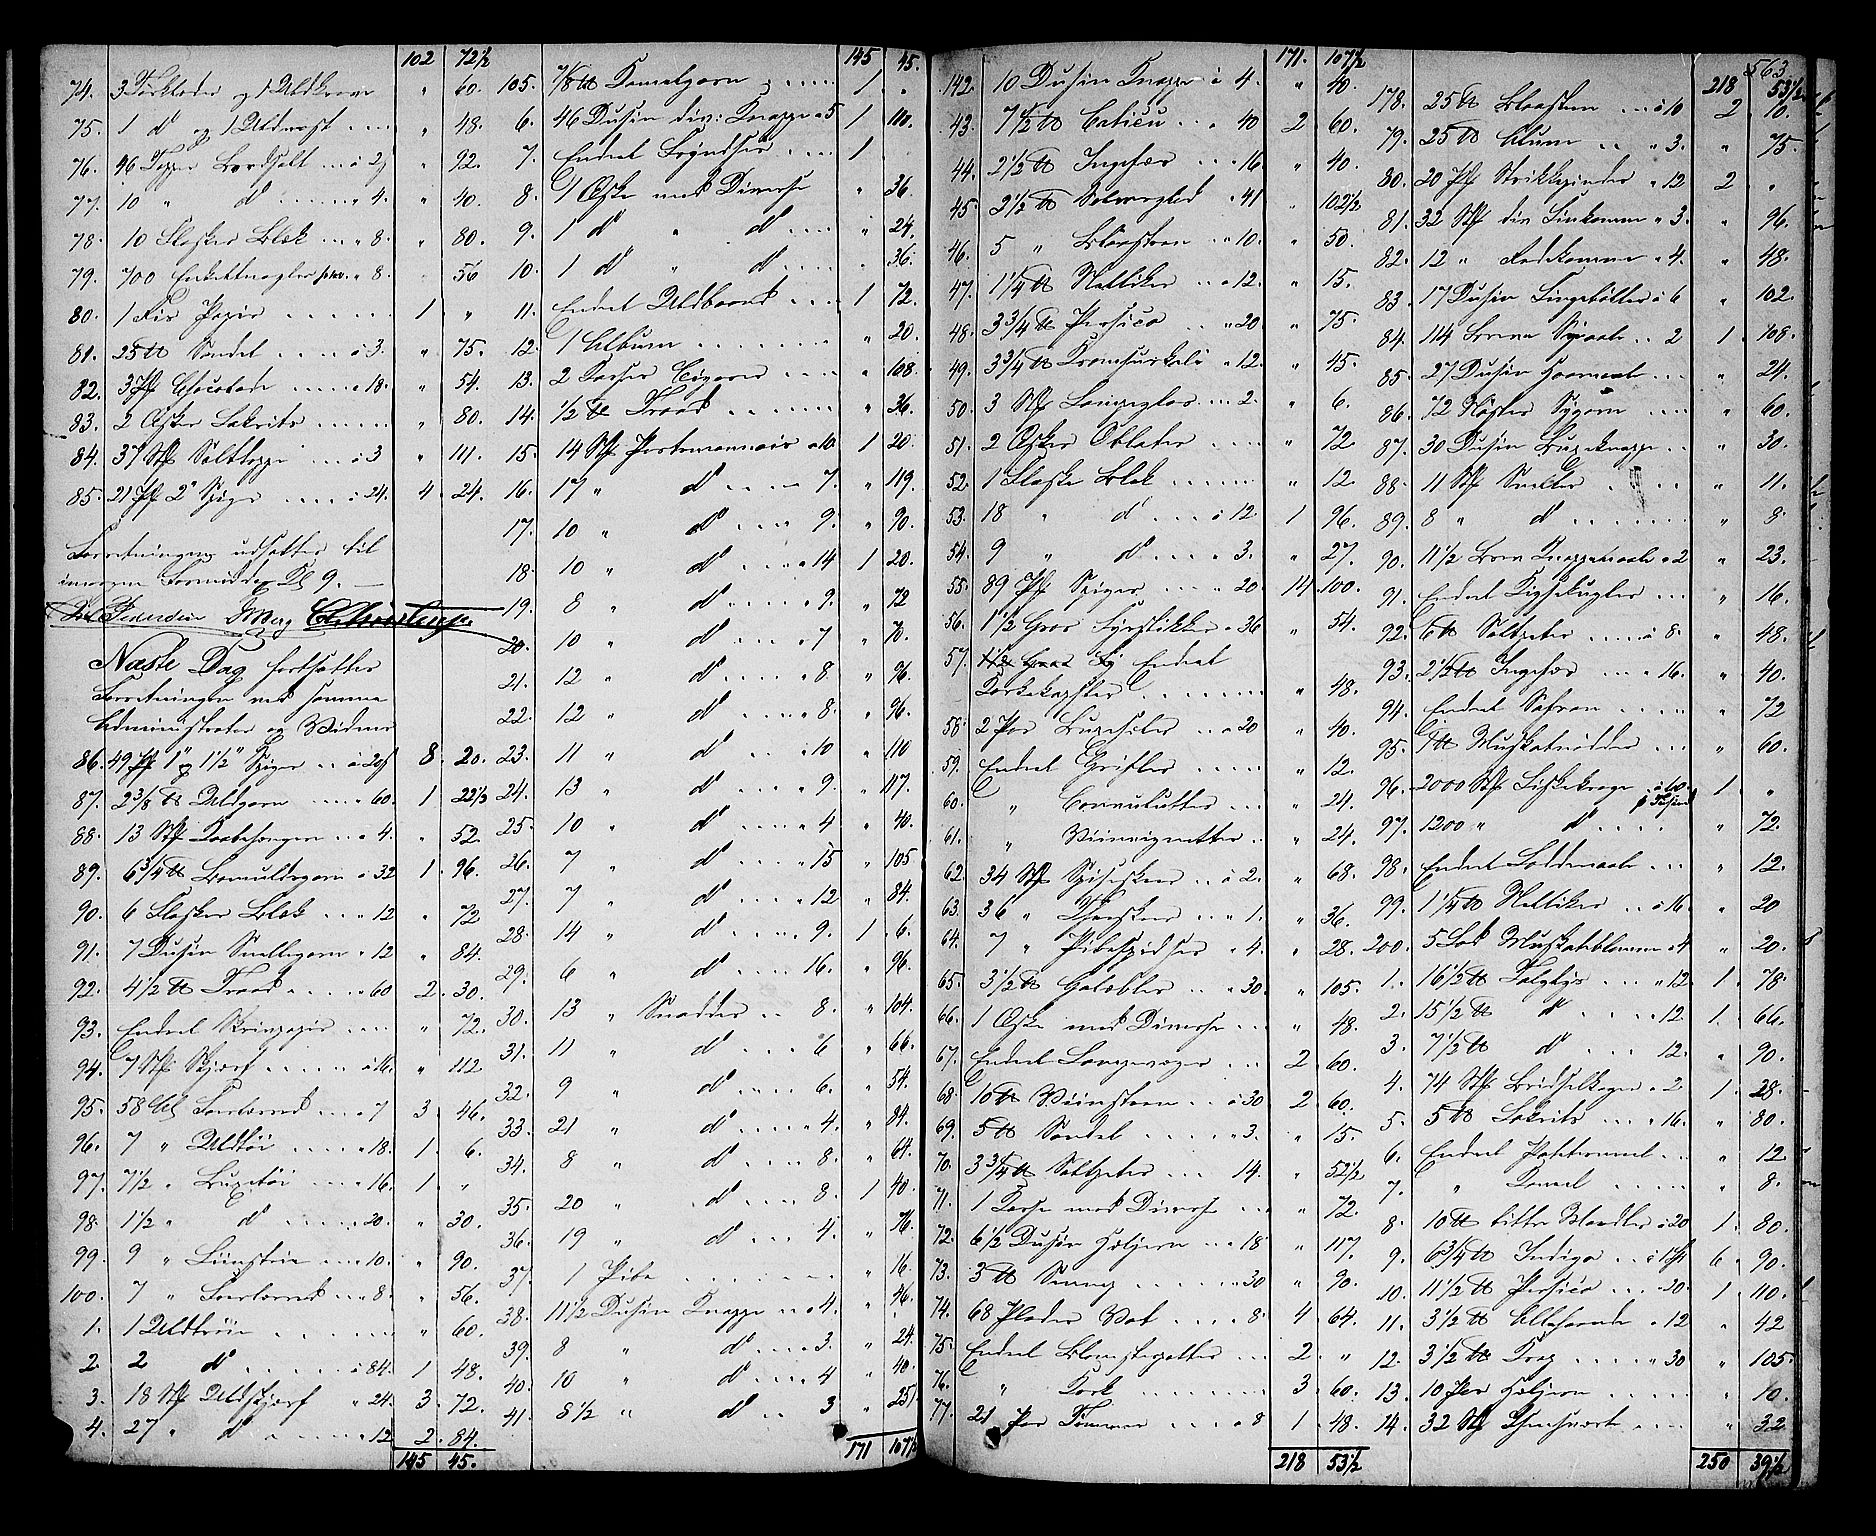 102 72½
74. 3 Tørklæder og 1 Uldkrave " 60.
75. 1 d og 1 Uldvest " 48.
76. 46 Topper Bordsalt à 2 " 92.
77. 10 " d 4. " 40.
78. 10 Flasker Blæk 8. " 80.
79. 700 8. 56
80. 1 Ris Papir 1 "
81. 25 ℔ Sandel à 3. " 75.
82. 3 Pk Chocolade 18. " 54.
83. 2 Æsker Lakrits 80.
84. 37 Stk Salttoppe à 3 " 111.
85. 21 Pk 2" Spiger à 24. 4. 24.
Forretningen udsattes til
imorgen Formiddag Kl 9.
Næste Dag fortsattes
Forretningen ved samme
Administrator og Vidner
86. 49 Pk 1" og 1½" Spiger à 20 8. 20.
87. 2 3/8 ℔ Uldgarn 60. 1 22½
88. 13 Stk 4. " 52
89. 6¾ ℔ Bomuldsgarn à 32 1. 96.
90. 6 Flasker Blæk 12 " 72
91. 7 Dusin Snellegarn 12 " 84.
92. 4½ ℔ Traad 60 2. 30.
93. Endeel Skrivpapir " 72.
94. 7 Stk Skjærf à 16. " 112
95. 58 Al Foerlærred 7 3. 46.
96. 7 " Uldtøi 18. 1. 6.
97. 7½ " Buxetøi 16. 1 "
98. 1½ " d 20. " 30.
99. 9 " 10. " 90.
100. 7 " Foerlærred 8. " 56.
1. 1 Uldtrøie " 60.
2. 2 d à 84. 1 48.
3. 18 Stk Uldskjærf 24. 3. 72.
4. 27 " d 12 2. 84.
145 45.
145 45.
105. 7/8 ℔ Kamelgarn 1. "
6. 46 Dusin div: Knappe 5 1 110.
7. Endeel 1
8. 1 Æske med Diverse " 36.
9. 1 d " d " 24.
10. 1 d " d " 36.
11. Endeel Uldbaand 1 72.
12. 1 Album " 20.
13. 2 Kasser Cigarer " 108
14. ½ ℔ Traad " 36.
15. 14 Stk Portemonnaier 10. 1 20.
16. 17 " d 7. " 119.
17. 10 " d 9. " 90.
18. 10 " d 14 1 20.
19. 8 " d 9. " 72
20. 10 " d 7 " 70.
21. 12 " d 8 " 96.
22. 12 " d 8. " 96.
23. 11 " d 10 " 110
24. 13 " d 9. " 117.
25. 10 " d 4 " 40.
26. 7 " d 15 " 105
27. 7 " d 12 " 84.
28. 14 " d 9. 1 6.
29. 6 " d 16. " 96.
30. 13 " Snadder 8. " 104.
31. 11 " d 6 " 66.
32. 9 " d 6. " 54.
33. 21 " d 4. " 84.
34. 8 " d 8. " 64
35. 20 " d 8 1 40.
36. 19 " d 4. " 76.
37. 1 Pibe " 16.
38. 11½ Dusin Knappe 4. " 46.
39. 8 " d 3. " 24.
40. 10 " d 4 " 40.
41. 8½ " d 3 " 25½
171 107½
171. 107½
142. 10 Dusin Knappe à 4. " 40.
43. 7½ ℔ Caticu 40 2 60.
44. 2½ ℔ Ingefær 16. " 40.
45. 2½ ℔ Sølverglød 41 " 102½
46. 5 " Blaasteen 10. " 50.
47. 1¼ ℔ Nelliker 12. " 15.
48. 3¾ ℔ Persico 20. " 75.
49. 3¾ ℔ Kromsurkali 12. " 45.
50. 3 Stk Lampeglas 2. " 6.
51. 2 Æsker Oblater " 72
52. 1 Flaske Blæk " 12
53. 18 " d à 12. 1 96.
54. 9 " d 3. " 27.
55. 89 Pk Spiger 20. 14 100.
56. 1½ Gros Fyrstikker 36 " 54.
57. Endeel
Korkekapsler " 48.
58. 2 Par Buxeseler 20 " 40.
59. Endeel Grifler " 12.
60. " Convolutter " 24.
61. " Viinvignetter " 24.
62. 34 Stk Spiseskeer à 2. " 68.
63. 36 " Theskeer 1. " 36.
64. 7 " Pibespidser 4. " 28.
65. 3½ ℔ Galæbler 30. " 105.
66. 1 Æske med Diverse " 48.
67. Endeel Lampevæger 2 60.
68. 10 ℔ Viinsteen à 30 2 60.
69. 5 ℔ Sandel 3. " 15.
70. 3¾ ℔ Saltpeter 14. " 52½
71. 1 Kasse med Diverse " 72.
72. 6½ Dusin Hæljern 18 " 117.
73. 3 ℔ Senneg 30 " 90.
74. 68 Plader Vat 8. 4 64.
75. Endeel Blomsterpotter 2 "
76. " Kork 3. 60.
77. 21 Par Tømmer 8 1 48.
218 53½
563.
218 53½
178. 25 ℔ Blaasteen à 10 2 10.
79. 25 ℔ Alun 3. " 75.
80. 20 Pk Strikkepinder 12 2 "
81. 32 Stk div Liinkamme 3. " 96.
82. 12 " Redekamme 4. " 48.
83. 17 Dusin Fingerbøller à 6 " 102.
84. 114 Breve Synaale 2 1 108.
85. 27 Dusin Haarnaale " 24.
86. 72 Nøster Sygarn " 60.
87. 30 Dusin Buxeknappe " 30.
88. 11 Stk " 11.
89. 8 " d " 8.
90. 11½ Brev Knappenaale 2 " 23.
91. Endeel " 16.
92. 6 ℔ Saltpeter à 8. " 48.
93. 2½ ℔ Ingefær 16. " 40.
94. Endeel Safran " 72
95. 1 ℔ Muskatnødder " 60.
96. 2000 Stk Fiskekroge à 60 1 "
97. 1200 " d " 72.
98. Endeel Loddenaale " 12.
99. 1¼ ℔ Nelliker à 16. " 20
200. 5 Lod Muskatblomme 4 " 20.
1. 16½ ℔ Talglys 12 1 78.
2. 15½ ℔ d 12. 1. 66.
3. 7½ ℔ d 12. " 90.
4. 74 Stk Bridselkager 2 1 28.
5. 5 ℔ Lakrits 16. " 80.
6. Endeel " 12
7. " Kaneel " 8.
8. 10 ℔ bittre Mandler à 20 1 80.
9. 6¾ ℔ Indigo 6 90.
10. 11½ ℔ Persico 20. 1 110.
11. 3½ ℔ Allehaande 12 " 42
12. 3½ ℔ Krap 30 " 105.
13. 10 Par Hæljern " 10.
14. 32 Stk " 32
250 39½